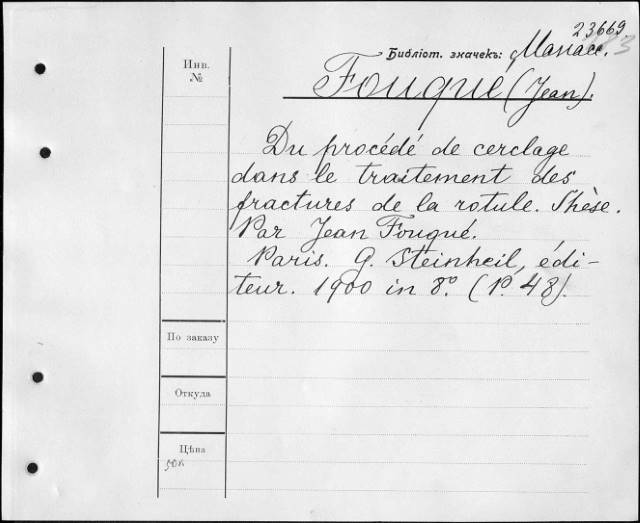 23669
Инв.
№
Библіот. значекъ:
Fouqué (Jean).
Du procédé de cerclage
dans le traitement des
fractures de la rotule. Thèse.
Par Jean Fouqué.
Paris. G. Steinheil, édi-
teur. 1900 in 8º. (p. 48).
По заказу
Откуда
Цѣна